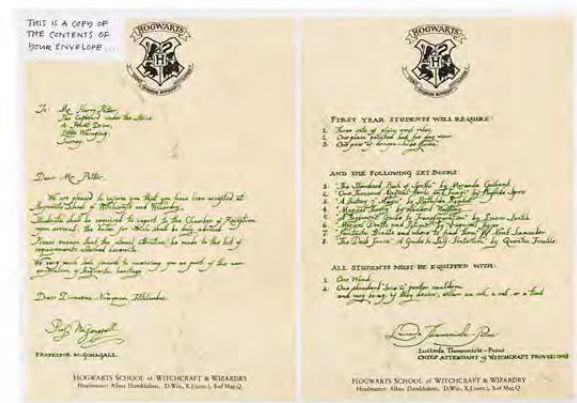 THIS IS A COPY OF
THE CONTENTS OF
YOUR ENVELOPE...
HOGWARTS
To: Mr Harry Potter,
The Cupboard under the Stairs
4 Privet Drive,
Little Whinging,
Surrey.
Dear Mr Potter,
We are pleased to inform you that you have been accepted at
Hogwarts School of Witchcraft and Wizardry.
Students shall be required to report to the Chamber of Reception
upon arrival, the dates for which shall be duly advised.
Please ensure that the utmost attention be made to the list of
requirements attached herewith.
We very much look forward to receiving you as part of the new
generation of Hogwarts heritage.
Prof. McGonagall
PROFESSOR McGONAGALL
HOGWARTS SCHOOL of WITCHCRAFT & WIZARDRY
Headmaster: Albus Dumbledore, D.Wiz., X.J.(sorc.), S.of Mag.Q.
HOGWARTS
FIRST YEAR STUDENTS WILL REQUIRE:
1. Three sets of plain work robes
2. One plain pointed hat for day wear
3. One pair of dragon-hide gloves
AND THE FOLLOWING SET BOOKS:
1. "The Standard Book of Spells" by Miranda Goshawk
2. "One Thousand Magical Herbs and Fungi" by Phyllida Spore
3. "A History of Magic" by Bathilda Bagshot
4. "Magical Theory" by Adalbert Waffling
5. "A Beginners Guide to Transfiguration" by Emeric Switch
6. "Magical Drafts and Potions" by Arsenius Jigger
7. "Fantastic Beasts and Where to Find Them" by Newt Scamander
8. "The Dark Forces: A Guide to Self-Protection" by Quentin Trimble
ALL STUDENTS MUST BE EQUIPPED WITH:
1. One Wand
2. One standard size 2 pewter cauldron
and may bring, if they desire, either an owl, a cat, or a toad
Lucinda Thomsonicle-Pocus
CHIEF ATTENDANT of WITCHCRAFT PROVISIONS
HOGWARTS SCHOOL of WITCHCRAFT & WIZARDRY
Headmaster: Albus Dumbledore, D.Wiz., X.J.(sorc.), S.of Mag.Q.